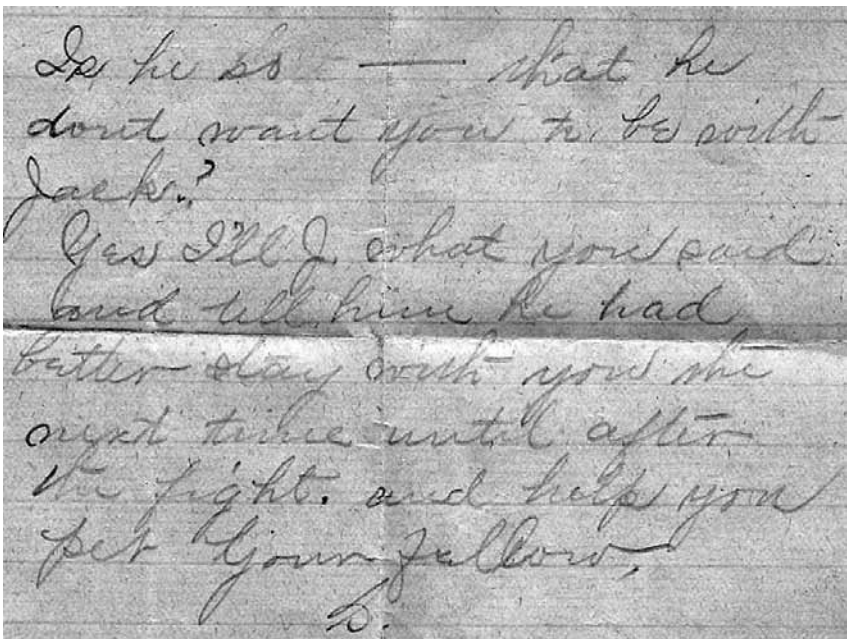 Is he so —— that he
dont want you to be with
Jack?
Yes I'll J. what you said
and tell him he had
better stay with you the
next time until after
the fight. and help you
pet your fellow,
S.